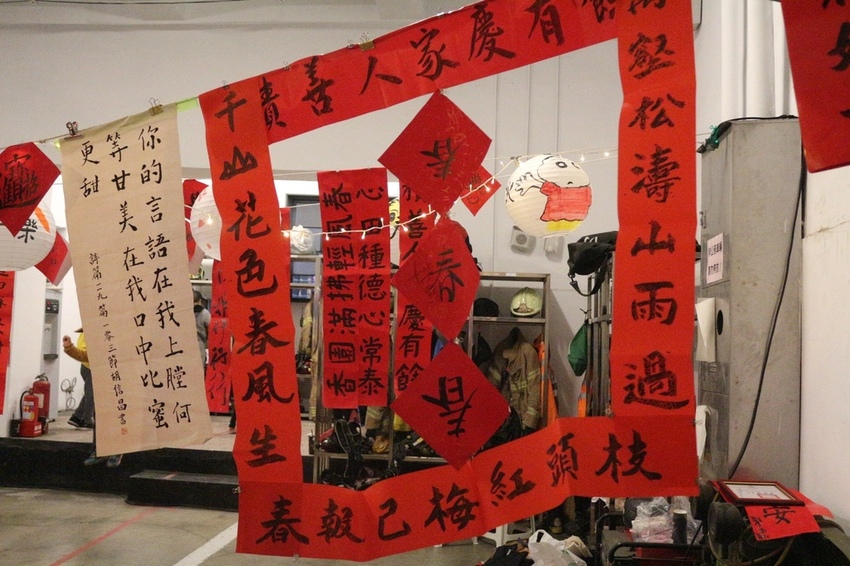 你的言語在我上膛何
等甘美在我口中比蜜
更甜
詩篇一一九篇一〇三節胡信昌書
善人家慶有餘
萬壑松濤山雨過
千山花色春風生
枝頭紅梅已報春
春
春
春
心田種德心常泰
春風輕拂滿園香
慶有餘
樂
安